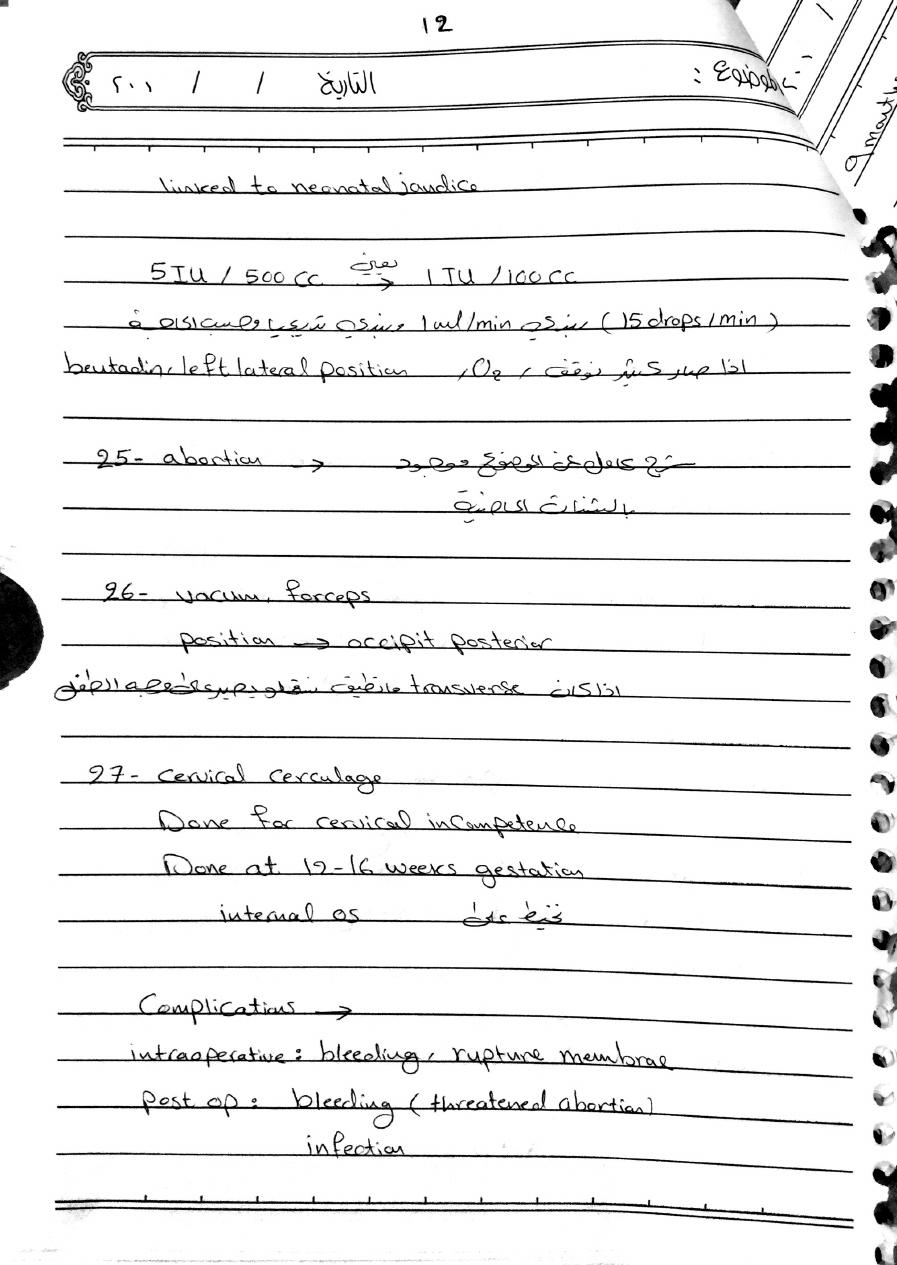 12
الموضوع :
التاريخ / / ٢٠٠١
9 month
linked to neonatal jaudice
5IU / 500 cc يعني → 1 IU / 100 cc
(15 drops / min) بنبدي 1 ml/min وبنبدي تدريجيا وحسب
اذا صار كثير نوقف , O₂, left lateral position
25- abortion → شرح كامل عن الموضوع موجود
بالشيتات الماضية
26- vacum, forceps
position → occipit posterior
اذا كانت transverse
27- cervical cerculage
Done for cervical incompetence
Done at 12-16 weeks gestation
نخيط على internal os
Complications →
intraoperative : bleeding, rupture membrae
post op : bleeding (threatened abortion)
infection